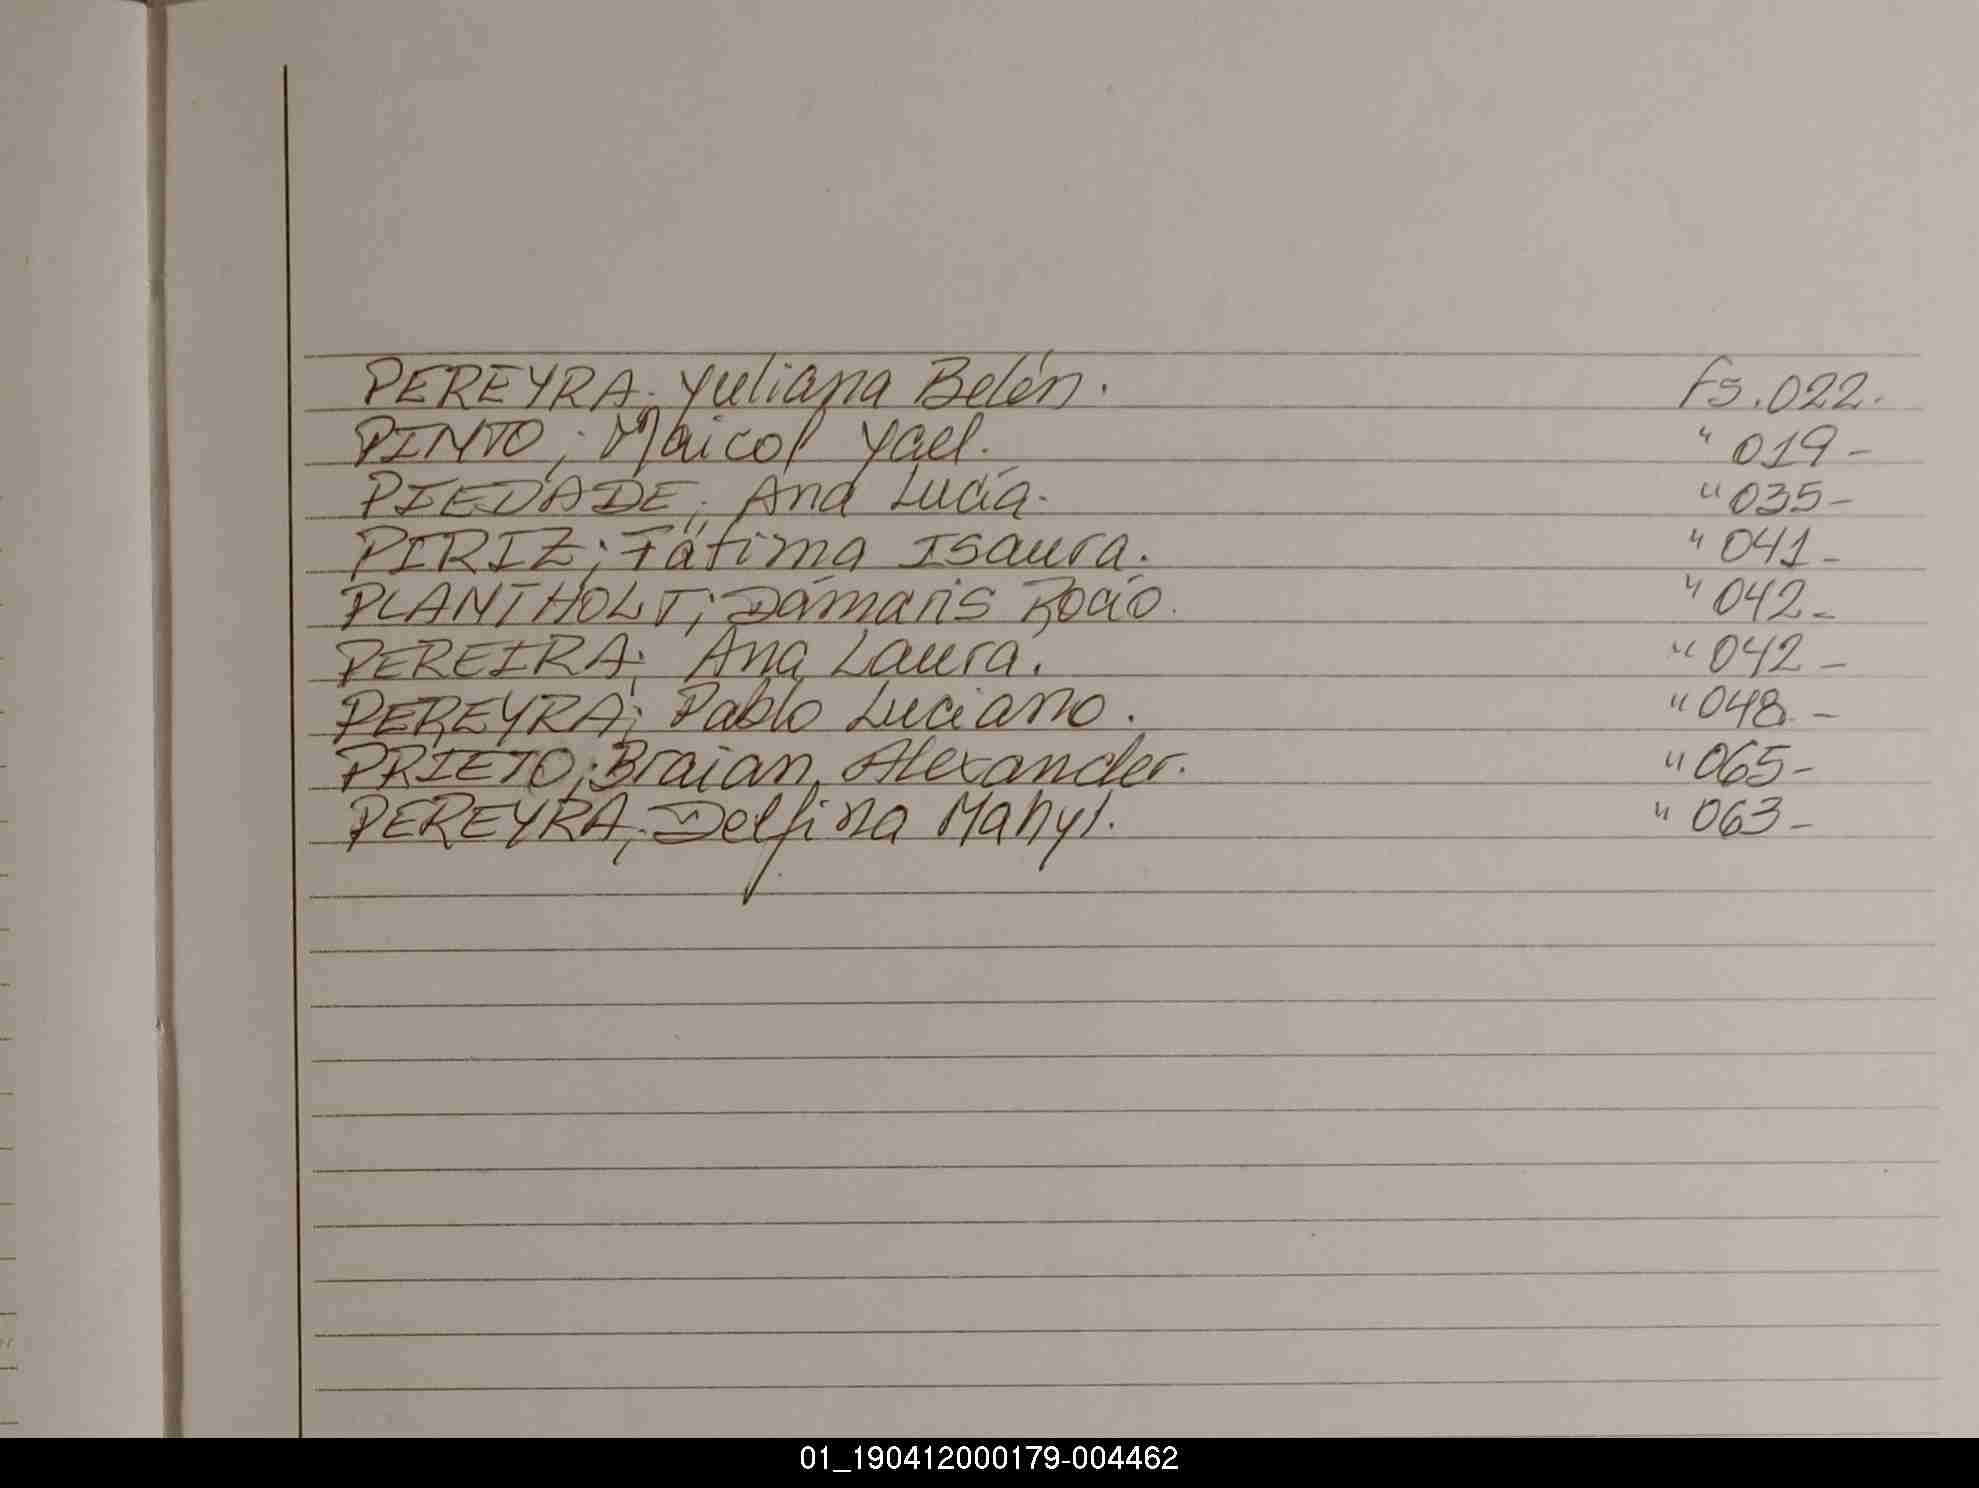 PEREYRA; Yuliana Belén. Fs. 022.
PINTO; Maicol Yael. " 019-
PIEDADE; Ana Lucía. " 035-
PIRIZ; Fátima Isaura. " 041-
PLANTHOLT; Dámaris Rocío. " 042-
PEREIRA; Ana Laura. " 042-
PEREYRA; Pablo Luciano. " 048-
PRIETO; Braian Alexander. " 065-
PEREYRA; Delfina " 063-
01_190412000179-004462